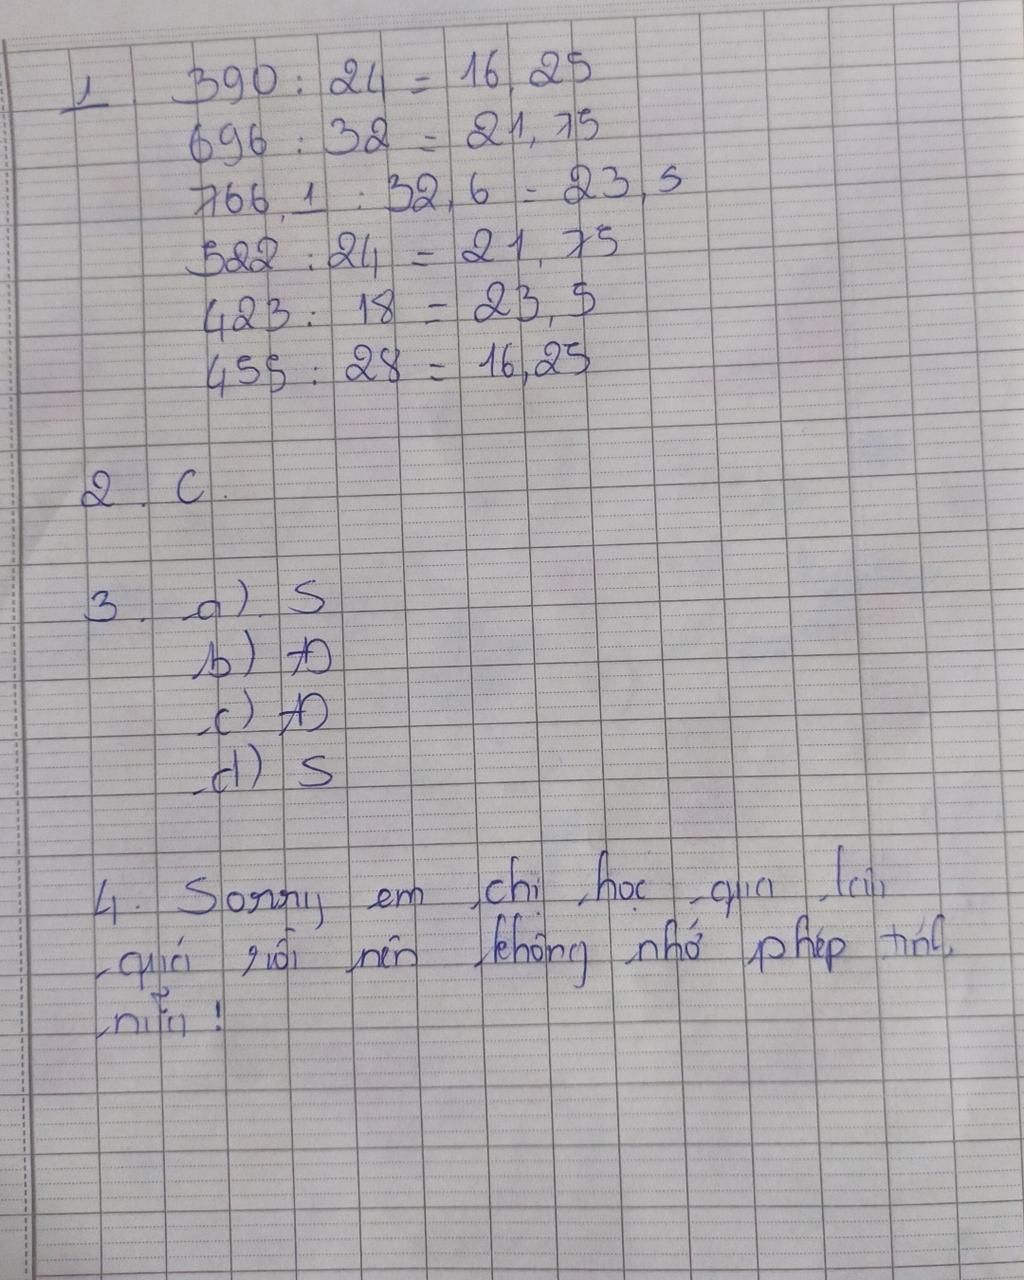 1 390 : 24 = 16,25
696 : 32 = 21,75
766,1 : 32,6 = 23,5
522 : 24 = 21,75
423 : 18 = 23,5
455 : 28 = 16,25
2. C.
3. a) S
b) Đ
c) Đ
d) S
4. Sorry em chị học qua
quá rồi nên không nhớ phép
nữa!